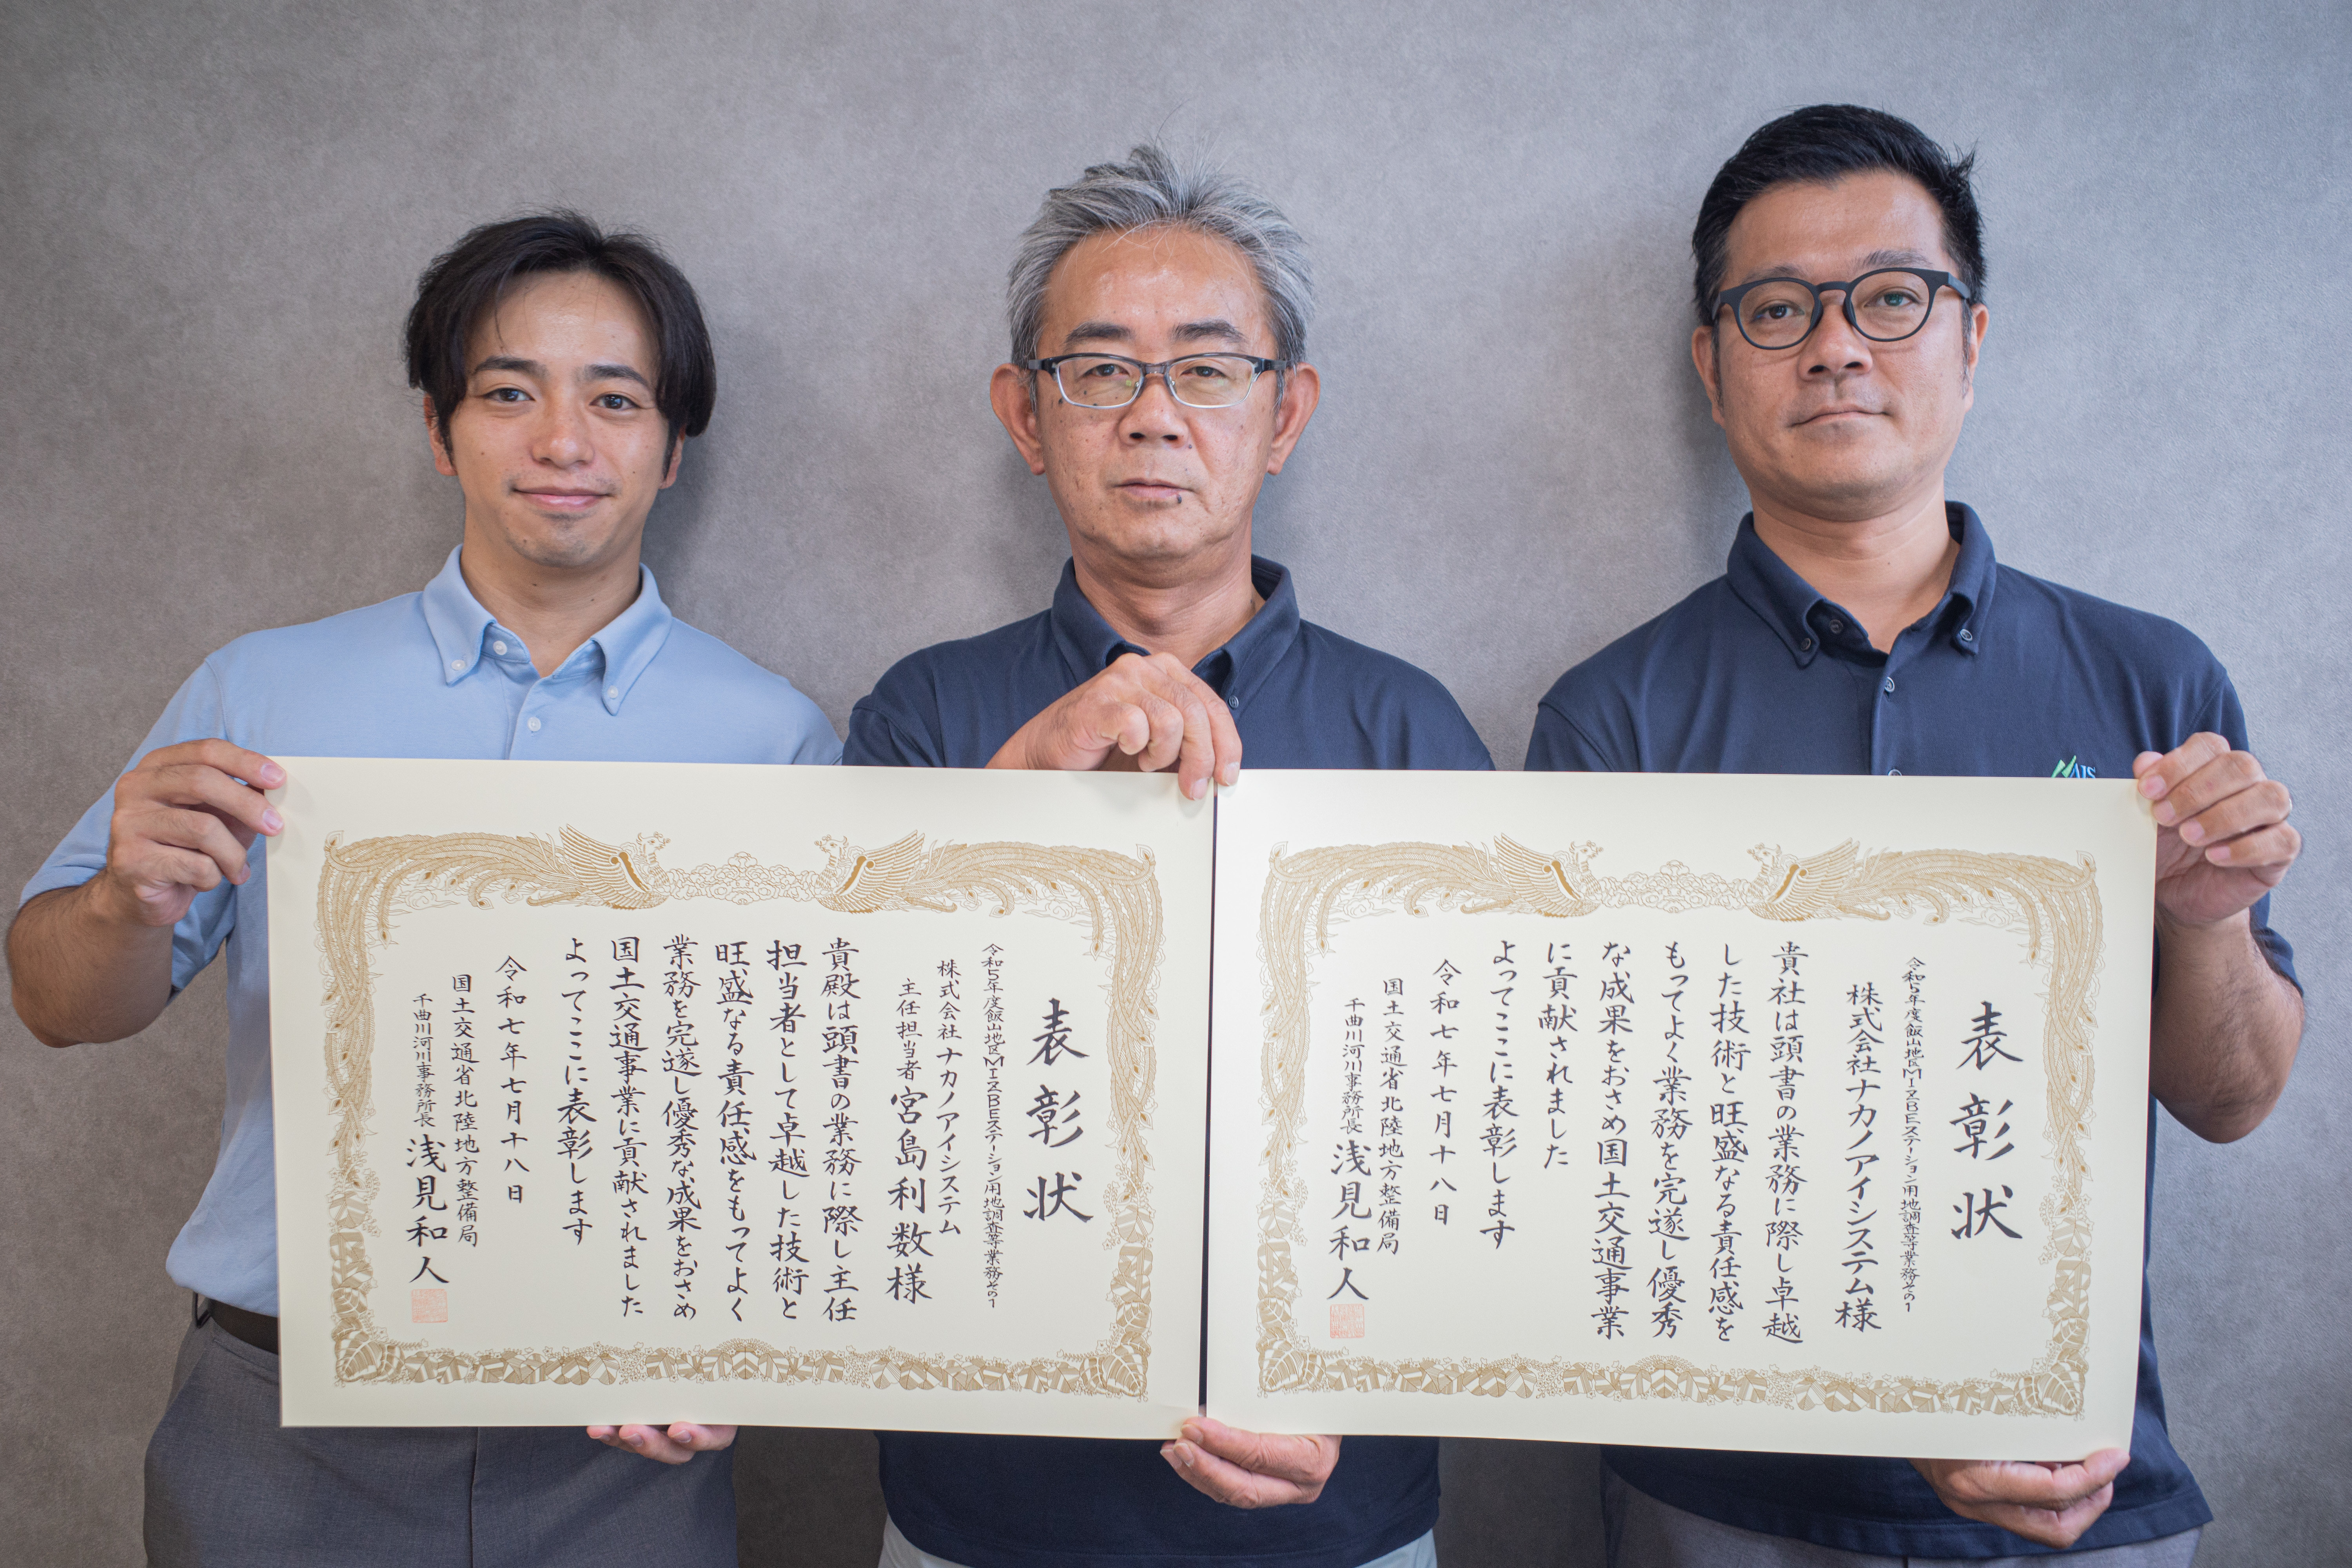 表彰状
令和5年度飯山地区MIZBEステーション用地調査等業務その1
株式会社ナカノアイシステム
主任担当者 宮島利数様
貴殿は頭書の業務に際し主任
担当者として卓越した技術と
旺盛なる責任感をもってよく
業務を完遂し優秀な成果をおさめ
国土交通事業に貢献されました
よってここに表彰します
令和七年七月十八日
国土交通省北陸地方整備局
千曲川河川事務所長 浅見和人
表彰状
令和5年度飯山地区MIZBEステーション用地調査等業務その1
株式会社ナカノアイシステム様
貴社は頭書の業務に際し卓越
した技術と旺盛なる責任感を
もってよく業務を完遂し優秀
な成果をおさめ国土交通事業
に貢献されました
よってここに表彰します
令和七年七月十八日
国土交通省北陸地方整備局
千曲川河川事務所長 浅見和人